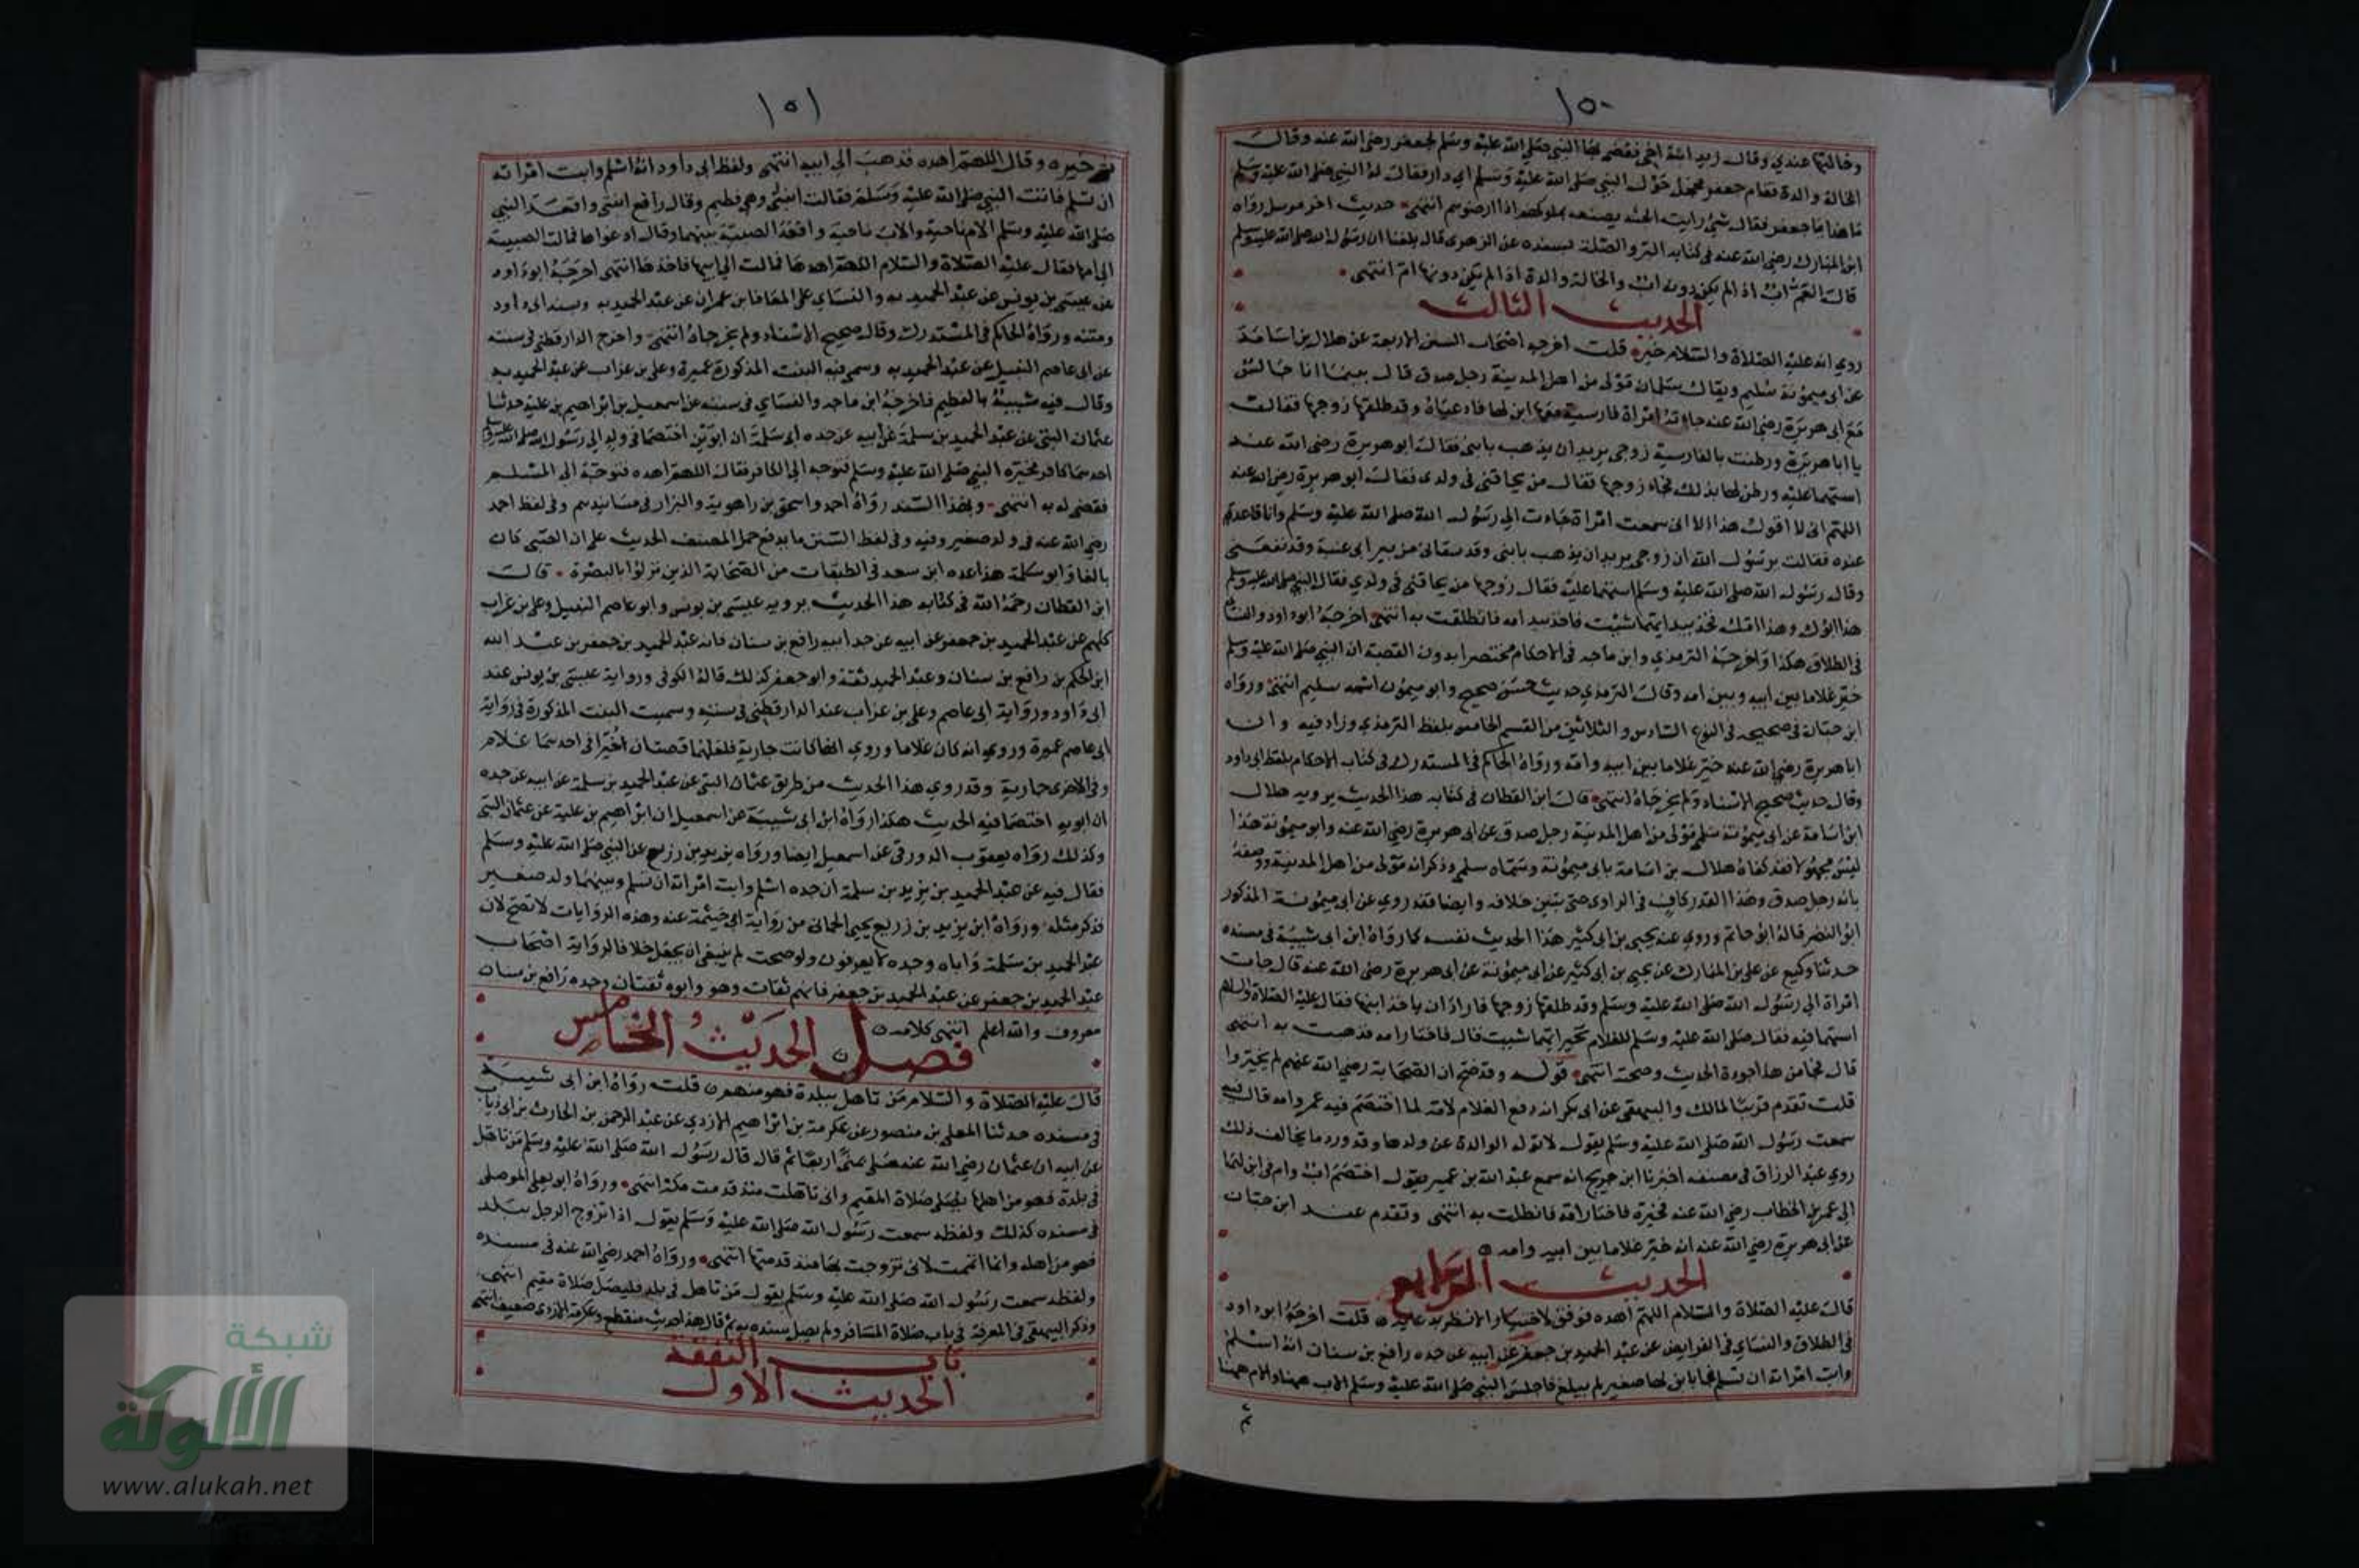 ١٥٠
وخالتها عندي وقال زيد ابنة اخي فقضى بها النبي صلى الله عليه وسلم لجعفر رضي الله عنه وقال
الخالة والدة فقام جعفر فحجل حول النبي صلى الله عليه وسلم اي دار فقال له النبي صلى الله عليه وسلم
ما هذا يا جعفر فقال شئ رايت الحبشة يصنعه بملوكهم اذا ارضوهم انتهى حديث اخر مرسل رواه
ابن المبارك رضي الله عنه في كتابه البر والصلة بسنده عن الزهري قال بلغنا ان رسول الله صلى الله عليه وسلم
قال العم اب اذا لم يكن دونه اب والخالة والدة اذا لم يكن دونها ام انتهى
الحديث الثالث
روي انه عليه الصلاة والسلام خير قلت اخرجه اصحاب السنن الاربعة عن هلال بن اسامة
عن ابي ميمونة سليم ويقال سلمان مولى من اهل المدينة رجل صدق قال بينما انا جالس
مع ابي هريرة رضي الله عنه جاءته امراة فارسية معها ابن لها فادعياه وقد طلقها زوجها فقالت
يا ابا هريرة ورطنت بالفارسية زوجي يريد ان يذهب بابني فقال ابو هريرة رضي الله عنه
استهما عليه ورطن لها بذلك فجاء زوجها فقال من يحاقني في ولدي فقال ابو هريرة رضي الله عنه
اللهم اني لا اقول هذا الا اني سمعت امراة جاءت الى رسول الله صلى الله عليه وسلم وانا قاعد
عنده فقالت يرسول الله ان زوجي يريد ان يذهب بابني وقد سقاني من بير ابي عنبة وقد نفعني
وقال رسول الله صلى الله عليه وسلم استهما عليه فقال زوجها من يحاقني في ولدي فقال النبي صلى الله عليه وسلم
هذا ابوك وهذا امك فخذ بيد ايهما شئت فاخذ بيد امه فانطلقت به انتهى اخرجه ابو داود والنسائي
في الطلاق هكذا واخرجه الترمذي وابن ماجه في الاحكام مختصرا بدون القصة ان النبي صلى الله عليه وسلم
خير غلاما بين ابيه وبين امه وقال الترمذي حديث حسن صحيح وابو ميمون اسمه سليم انتهى ورواه
ابن حبان في صحيحه في النوع السادس والثلاثين من القسم الخامس بلفظ الترمذي وزاد فيه وان
ابا هريرة رضي الله عنه خير غلاما بين ابيه وامه ورواه الحاكم في المستدرك في كتاب الاحكام بلفظ ابي داود
وقال حديث صحيح الاسناد ولم يخرجاه انتهى قال ابن القطان في كتابه هذا الحديث يرويه هلال
ابن اسامة عن ابي ميمونة سلم مولى من اهل المدينة رجل صدق عن ابي هريرة رضي الله عنه وابو ميمونة هذا
ليس مجهولا فقد كناه هلال بن اسامة بابي ميمونة وسماه سلم وذكر انه مولى من اهل المدينة ووصفه
بانه رجل صدق وهذا القدر كاف في الراوي حتى يتبين خلافه وايضا فقد روي عن ابي ميمونة المذكور
ابو النضر قاله ابو حاتم وروي عنه يحيى بن ابي كثير هذا الحديث نفسه كما رواه ابن ابي شيبة في مسنده
حدثنا وكيع عن علي بن المبارك عن يحيى بن ابي كثير عن ابي ميمونة عن ابي هريرة رضي الله عنه قال جات
امراة الى رسول الله صلى الله عليه وسلم وقد طلقها زوجها فاراد ان ياخذ ابنها فقال عليه الصلاة والسلام
استهما فيه فقال صلى الله عليه وسلم للغلام تخير ايهما شيت قال فاختار امه فذهبت به انتهى
قال فجا من هذا جودة الحديث وصحته انتهى قوله وقد صح ان الصحابة رضي الله عنهم لم يخيروا
قلت تقدم قريبا لمالك والبيهقي عن ابي بكر انه دفع الغلام لامه لما اختصم فيه عمر وامه قال
سمعت رسول الله صلى الله عليه وسلم يقول لا توله الوالدة عن ولدها وقد ورد ما يخالف ذلك
روي عبد الرزاق في مصنفه اخبرنا ابن جريج انه سمع عبد الله بن عمير يقول اختصم اب وام في ابن لهما
الى عمر بن الخطاب رضي الله عنه فخيره فاختار امه فانطلت به انتهى وتقدم عند ابن حبان
عن ابي هريرة رضي الله عنه انه خير غلاما بين ابيه وامه
الحديث الرابع
قال عليه الصلاة والسلام اللهم اهده فوفق لاختيار الانظر بدعايه قلت اخرجه ابو داود
في الطلاق والنسائي في الفرايض عن عبد الحميد بن جعفر عن ابيه عن جده رافع بن سنان انه اسلم
وابت امراته ان تسلم فجا بابن لها صغير لم يبلغ فاجلس النبي صلى الله عليه وسلم الاب ههنا والام ههنا
ثم
١٥١
ثم خيره وقال اللهم اهده فذهب الى ابيه انتهى ولفظ ابي داود انه اسلم وابت امراته
ان تسلم فاتت النبي صلى الله عليه وسلم فقالت ابنتي وهي فطيم وقال رافع ابنتي واقعد النبي
صلى الله عليه وسلم الام ناحية والاب ناحية واقعد الصبية بينهما وقال ادعواها فمالت الصبية
الى امها فقال عليه الصلاة والسلام اللهم اهدها فمالت الى ابيها فاخذها انتهى اخرجه ابو داود
عن عيسى بن يونس عن عبد الحميد به والنسائي عن المعافا بن عمران عن عبد الحميد به وبسند ابي داود
ومتنه ورواه الحاكم في المستدرك وقال صحيح الاسناد ولم يخرجاه انتهى واخرج الدارقطني في سننه
عن ابي عاصم النبيل عن عبد الحميد به وسمى فيه البنت المذكورة عميرة وعلي بن غراب عن عبد الحميد به
وقال فيه شبيه بالفطيم فاخرجه ابن ماجه والنسائي في سننه عن اسمعيل بن ابراهيم بن علية حدثنا
عثمان البتي عن عبد الحميد بن سلمة عن ابيه عن جده ابي سلمة ان ابوين اختصما في ولد الى رسول الله صلى الله عليه وسلم
احدهما كافر فخيره النبي صلى الله عليه وسلم فتوجه الى الكافر فقال اللهم اهده فتوجه الى المسلم
فقضى له به انتهى وبهذا السند رواه احمد واسحق بن راهويه والبزار في مسانيدهم وفي لفظ احمد
رضي الله عنه في ولد صغير وفيه وفي لفظ السنن ما يدفع حمل المصنف الحديث على ان الصبي كان
بالغا وابو سلمة هذا عده ابن سعد في الطبقات من الصحابة الذين نزلوا بالبصرة قال
ابن القطان رحمه الله في كتابه هذا الحديث يرويه عيسى بن يونس وابو عاصم النبيل وعلي بن غراب
كلهم عن عبد الحميد بن جعفر عن ابيه عن جد ابيه رافع بن سنان فانه عبد الحميد بن جعفر بن عبد الله
ابن الحكم بن رافع بن سنان وعبد الحميد ثقة وابو جعفر كذلك قاله الكوفي ورواية عيسى بن يونس عند
ابي داود ورواية ابي عاصم وعلي بن غراب عند الدارقطني في سننه وسميت البنت المذكورة في رواية
ابي عاصم عميرة وروي انه كان غلاما وروي انها كانت جارية فلعلهما قصتان اخيرا في احدهما غلام
وفي الاخرى جارية وقد روي هذا الحديث من طريق عثمان البتي عن عبد الحميد بن سلمة عن ابيه عن جده
ان ابويه اختصما فيه الحديث هكذا رواه ابن ابي شيبة عن اسمعيل ابن ابراهيم بن علية عن عثمان البتي
وكذلك رواه يعقوب الدورقي عن اسمعيل ايضا ورواه يزيد بن زريع عن النبي صلى الله عليه وسلم
فقال فيه عن عبد الحميد بن يزيد بن سلمة ان جده اسلم وابت امراته ان تسلم وبينهما ولد صغير
فذكر مثله ورواه ابن يزيد بن زريع يحيى الحماني من رواية ابي خيثمة عنه وهذه الروايات لا تصح لان
عبد الحميد بن سلمة واباه وجده لا يعرفون ولو صحت لم ينبغي ان يجعل خلافا لرواية اصحاب
عبد الحميد بن جعفر عن عبد الحميد بن جعفر فانهم ثقات وهو وابوه ثقتان وجده رافع بن سنان
معروف والله اعلم انتهى كلامه
فصل الحديث الخامس
قال عليه الصلاة والسلام من تاهل ببلدة فهو منهم قلت رواه ابن ابي شيبة
في مسنده حدثنا المعلى بن منصور عن عكرمة بن ابراهيم الازدي عن عبد الرحمن بن الحارث بن ابي ذياب
عن ابيه ان عثمان رضي الله عنه صلى بمنى اربعا ثم قال قال رسول الله صلى الله عليه وسلم من تاهل
في بلدة فهو من اهلها يصلي صلاة المقيم واني تاهلت منذ قدمت مكة انتهى ورواه ابو يعلى الموصلي
في مسنده كذلك ولفظه سمعت رسول الله صلى الله عليه وسلم يقول اذا تزوج الرجل ببلد
فهو من اهله وانما اتممت لاني تزوجت بها منذ قدمتها انتهى ورواه احمد رضي الله عنه في مسنده
ولفظه سمعت رسول الله صلى الله عليه وسلم يقول من تاهل في بلد فليصل صلاة مقيم انتهى
وذكر البيهقي في المعرفة في باب صلاة المسافر ولم يصل سنده به ثم قال هذا حديث منقطع وعكرمة الازدي ضعيف انتهى
باب النفقة
الحديث الاول
شبكة
الألوكة
www.alukah.net